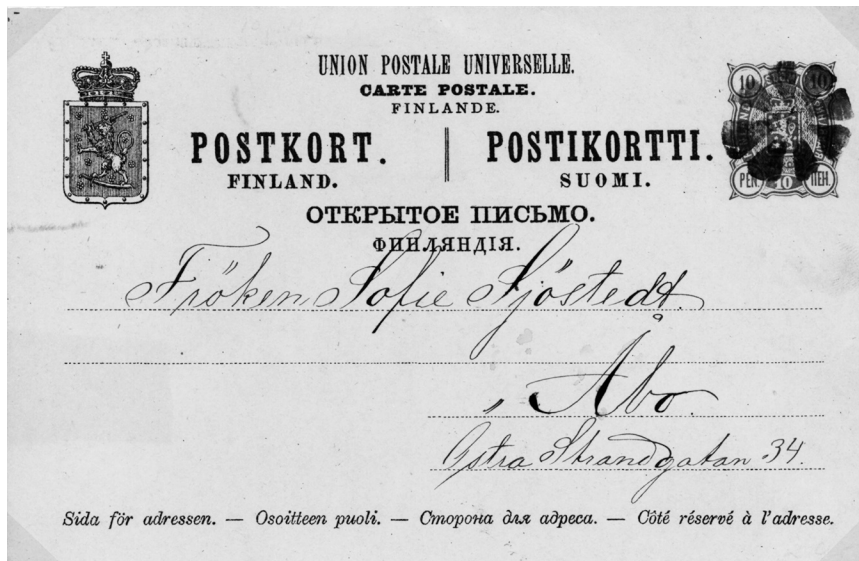 UNION POSTALE UNIVERSELLE.
CARTE POSTALE.
FINLANDE.
POSTKORT. POSTIKORTTI.
FINLAND. SUOMI.
ОТКРЫТОЕ ПИСЬМО.
ФИНЛЯНДІЯ.
10 10
PEN. 10 ПЕН.
Fröken Sofie Sjöstedt.
Åbo.
Östra Strandgatan 34.
Sida för adressen. — Osoitteen puoli. — Сторона для адреса. — Côté réservé à l'adresse.